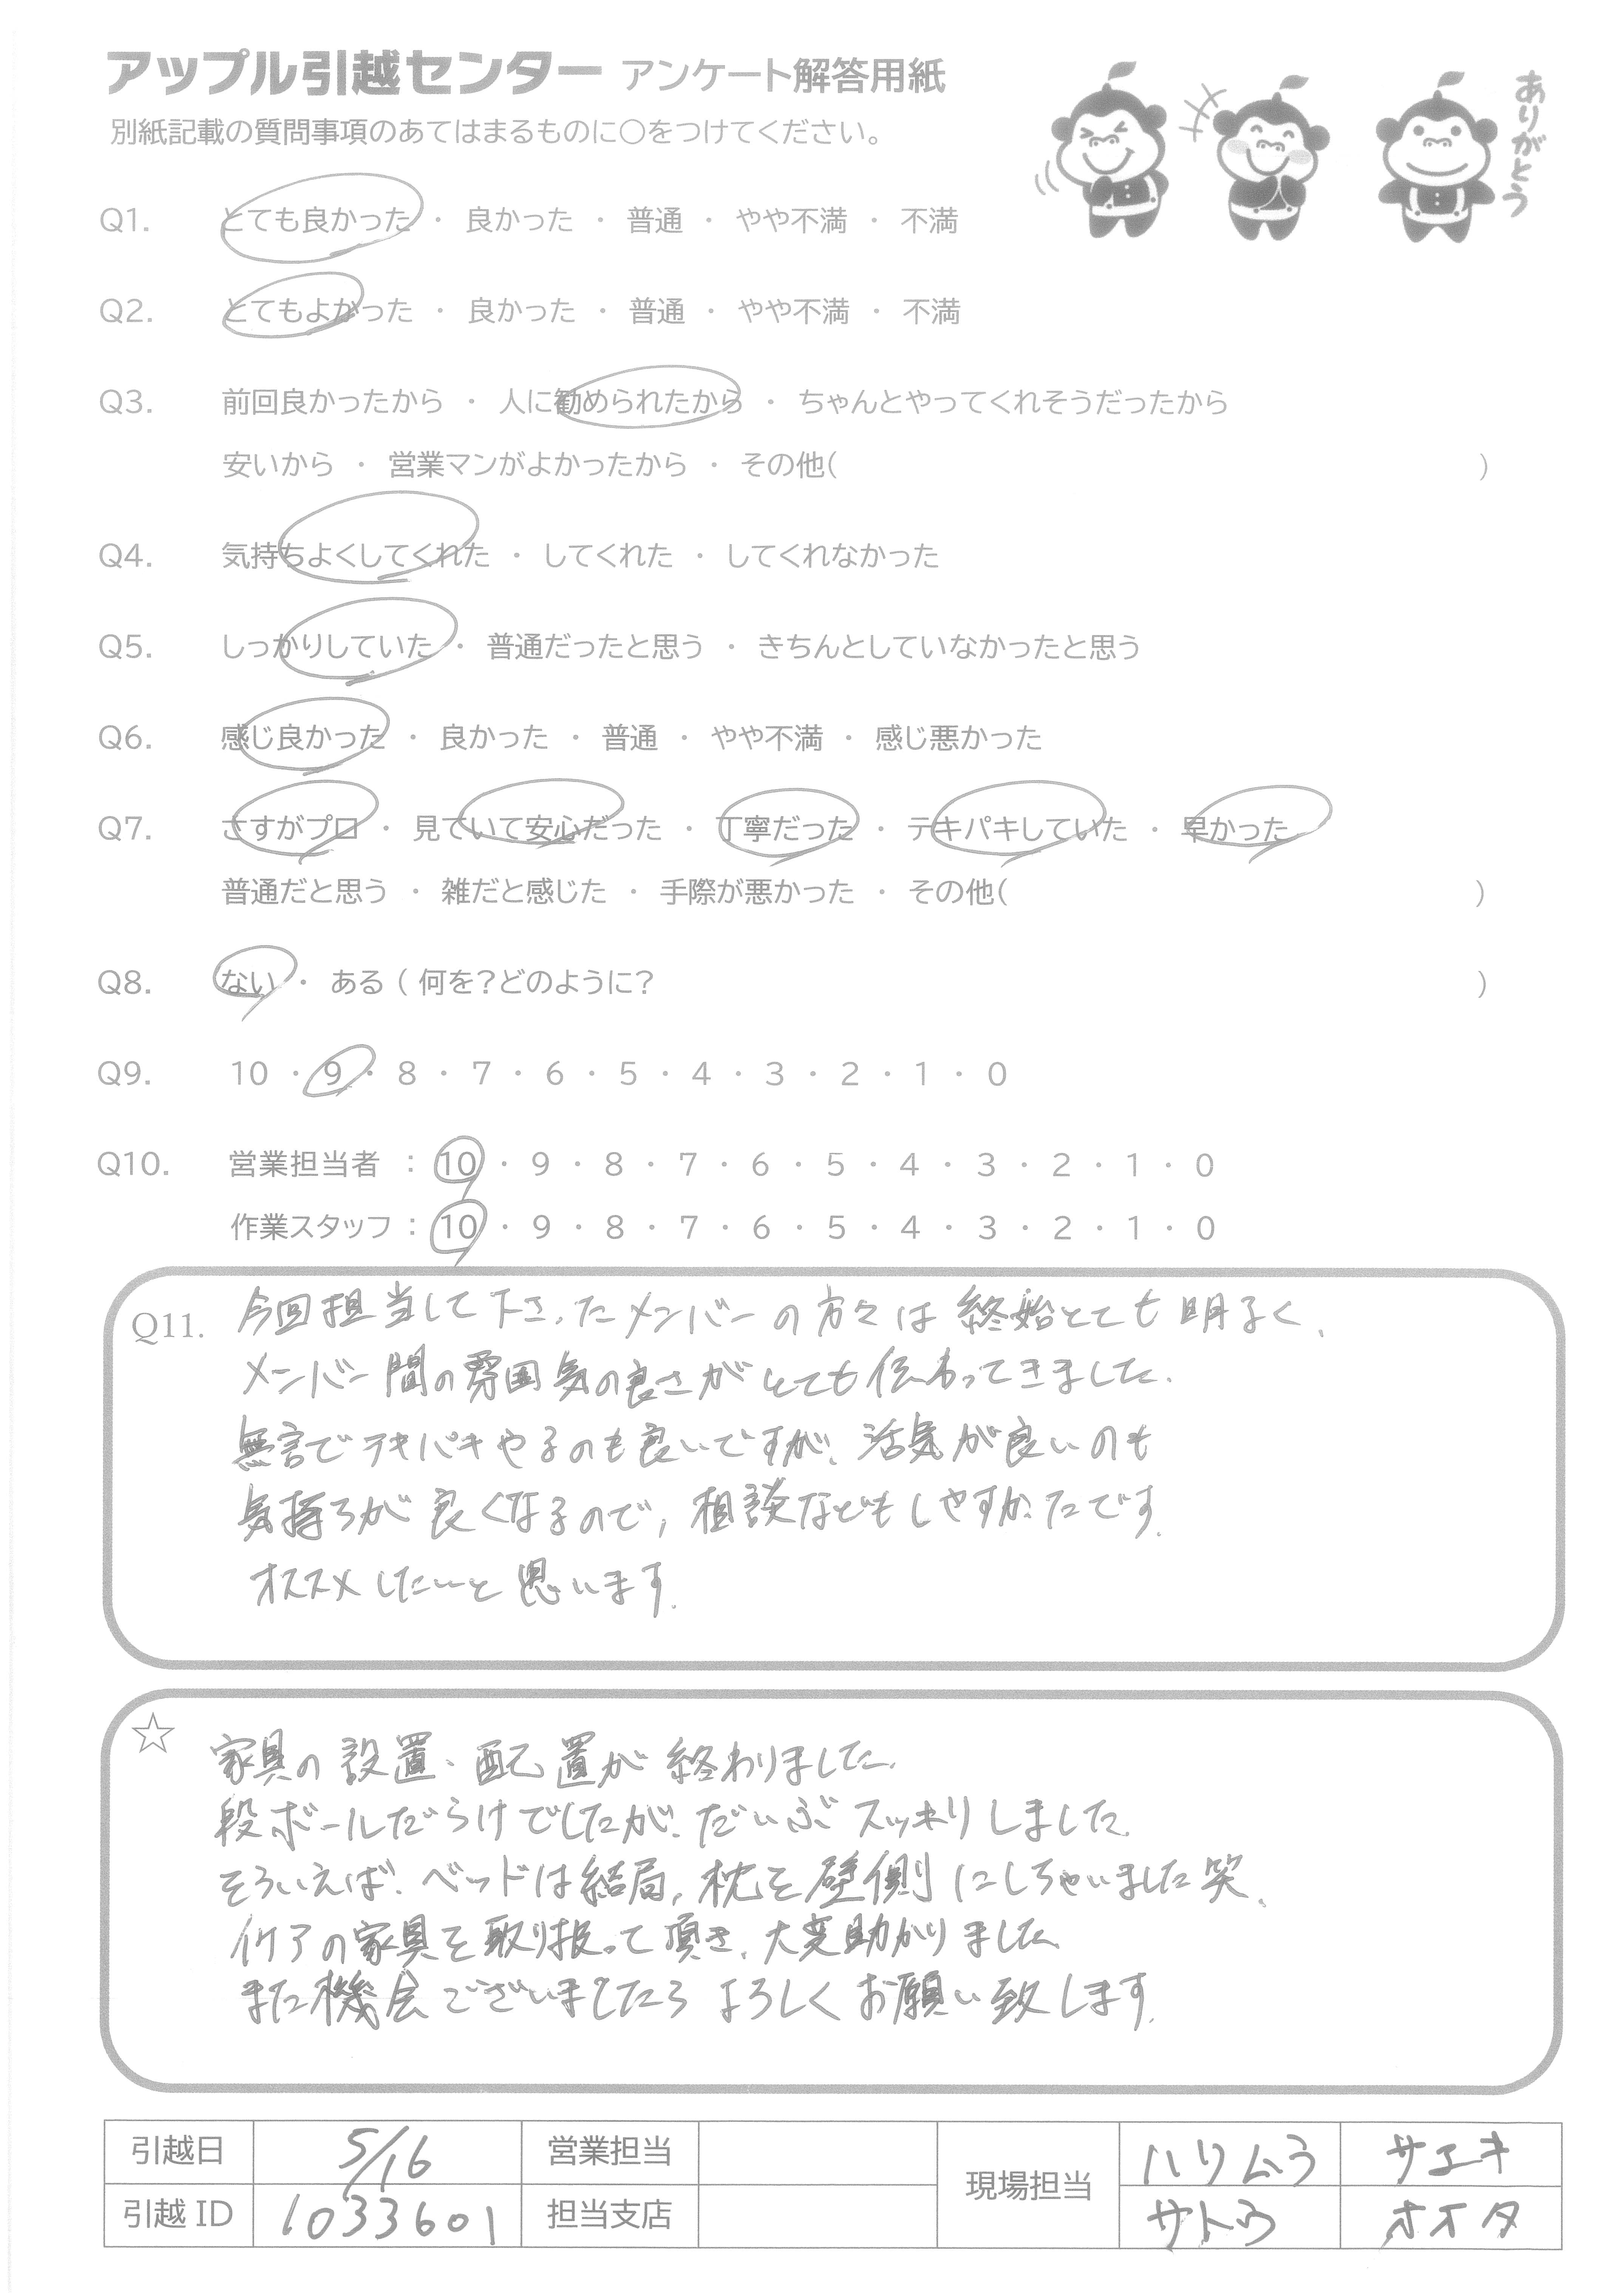 アップル引越センター アンケート解答用紙
別紙記載の質問事項のあてはまるものに○をつけてください。
ありがとう
Q1. とても良かった ・ 良かった ・ 普通 ・ やや不満 ・ 不満
Q2. とてもよかった ・ 良かった ・ 普通 ・ やや不満 ・ 不満
Q3. 前回良かったから ・ 人に勧められたから ・ ちゃんとやってくれそうだったから
安いから ・ 営業マンがよかったから ・ その他( )
Q4. 気持ちよくしてくれた ・ してくれた ・ してくれなかった
Q5. しっかりしていた ・ 普通だったと思う ・ きちんとしていなかったと思う
Q6. 感じ良かった ・ 良かった ・ 普通 ・ やや不満 ・ 感じ悪かった
Q7. さすがプロ ・ 見ていて安心だった ・ 丁寧だった ・ テキパキしていた ・ 早かった
普通だと思う ・ 雑だと感じた ・ 手際が悪かった ・ その他( )
Q8. ない ・ ある ( 何を？どのように？ )
Q9. 10 ・ 9 ・ 8 ・ 7 ・ 6 ・ 5 ・ 4 ・ 3 ・ 2 ・ 1 ・ 0
Q10. 営業担当者 : 10 ・ 9 ・ 8 ・ 7 ・ 6 ・ 5 ・ 4 ・ 3 ・ 2 ・ 1 ・ 0
作業スタッフ : 10 ・ 9 ・ 8 ・ 7 ・ 6 ・ 5 ・ 4 ・ 3 ・ 2 ・ 1 ・ 0
Q11. 今回担当して下さったメンバーの方々は終始とても明るく、
メンバー間の雰囲気の良さがとても伝わってきました。
無言でテキパキやるのも良いですが、活気が良いのも
気持ちが良くなるので、相談などもしやすかったです。
オススメしたいと思います。
☆ 家具の設置・配置が終わりました。
段ボールだらけでしたが、だいぶスッキリしました。
そういえば、ベッドは結局、枕を壁側にしちゃいました笑。
イケアの家具を取り扱って頂き、大変助かりました。
また機会ございましたらよろしくお願い致します。
引越日 5/16 営業担当 現場担当 ハリムラ サエキ
引越ID 1033601 担当支店 サトウ オオタ